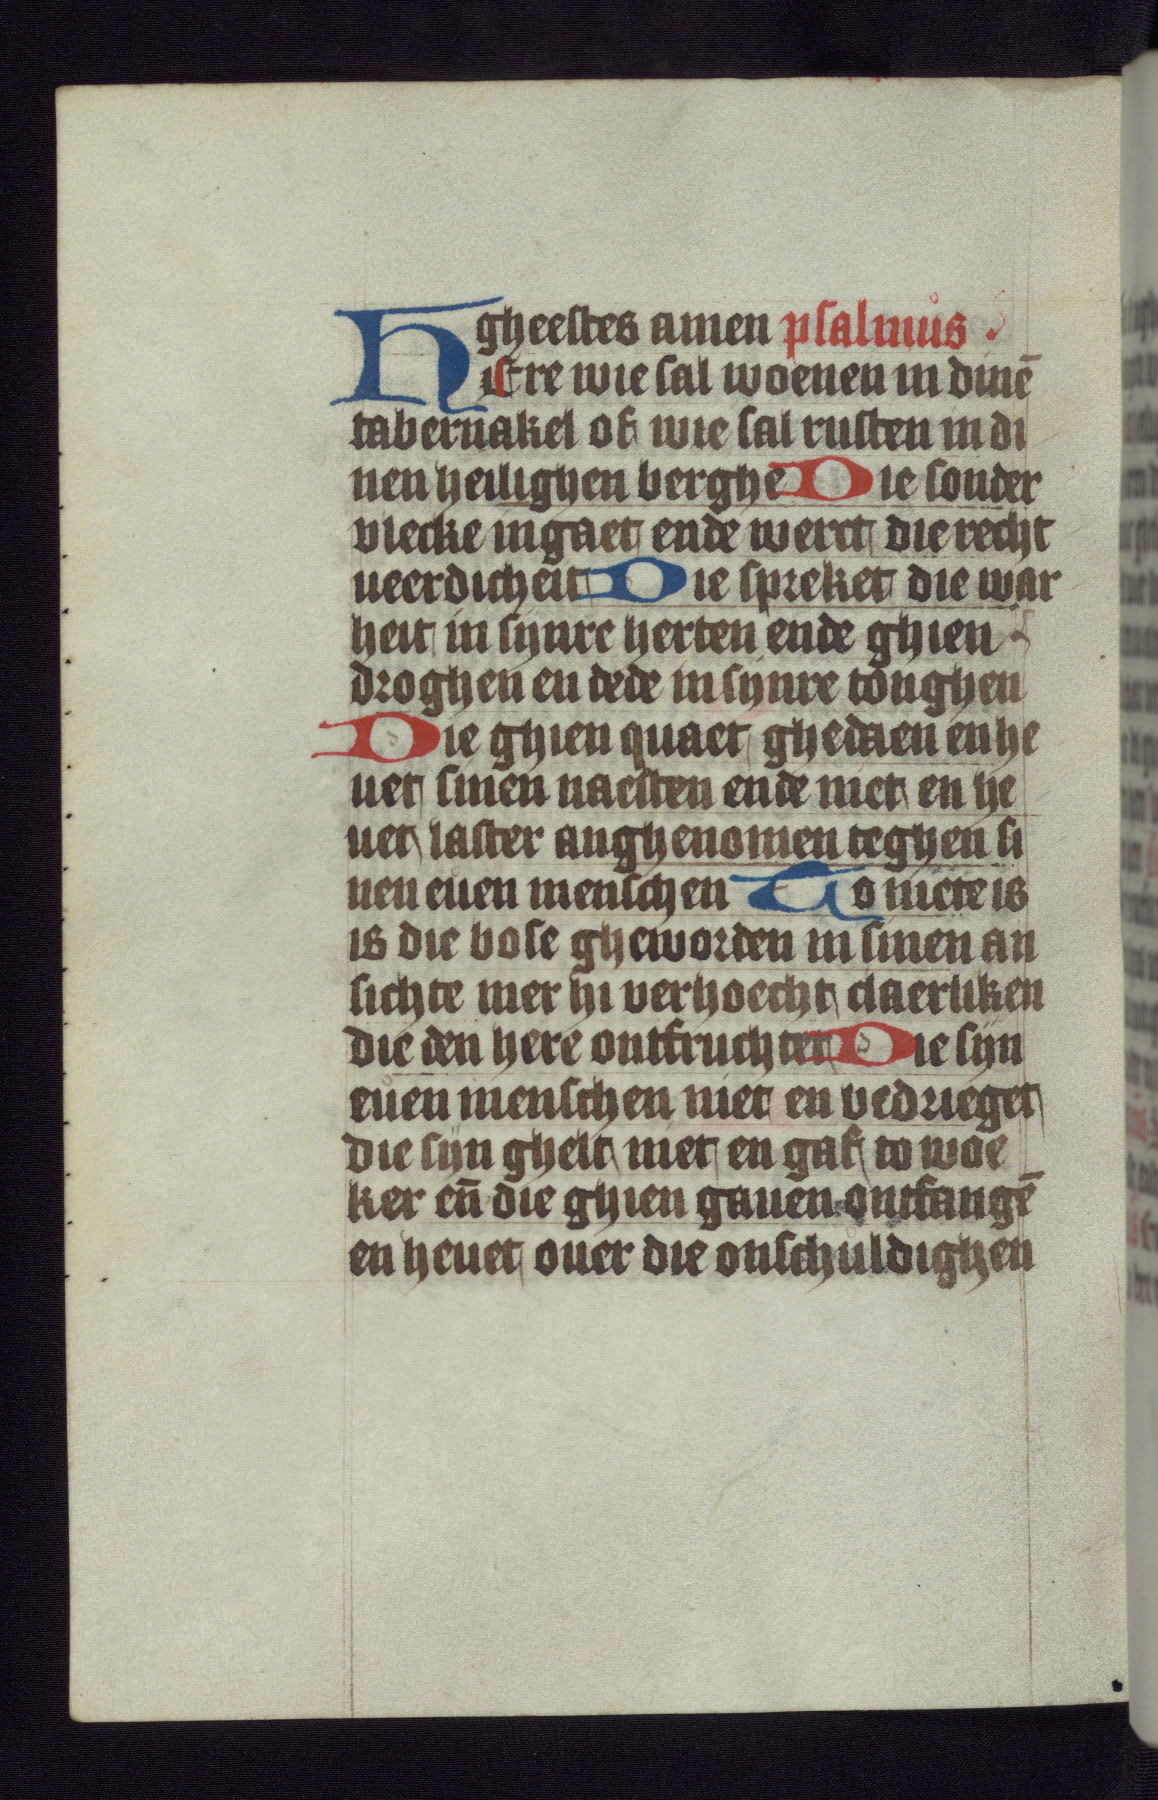 gheestes amen psalmus
Here wie sal woenen in dinē
tabernakel of wie sal rusten in di
nen heilighen berghe Die sonder
vlecke ingaet ende werct die recht
ueerdicheit Die spreket die war
heit in synre herten ende ghien
droghen en dede in synre tonghen
Die ghien quaet ghedaen en he
uet sinen naesten ende niet en he
uet laster anghenomen teghen si
nen euen menschen To niete is
is die bose gheworden in sinen an
sichte mer hi verhoecht claerliken
die den here ontfruchten Die sijn
euen menschen niet en vedrieget
die sijn ghelt niet en gaf to woe
ker en̄ die ghien gauen ontfangē
en heuet ouer die onschuldighen